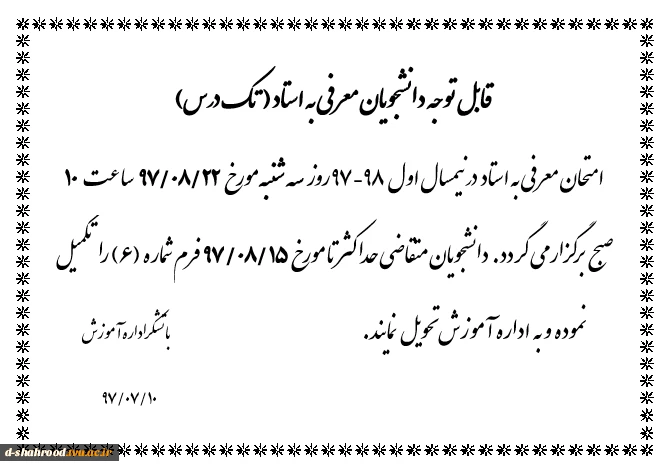 قابل توجه دانشجویان معرفی به استاد (تک درس)
امتحان معرفی به استاد در نیمسال اول ۹۸-۹۷ روز سه شنبه مورخ ۹۷/۰۸/۲۲ ساعت ۱۰
صبح برگزار می گردد. دانشجویان متقاضی حداکثر تا مورخ ۹۷/۰۸/۱۵ فرم شماره (۶) را تکمیل
نموده و به اداره آموزش تحویل نمایند.
باتشکر اداره آموزش
۹۷/۰۷/۱۰
d-shahrood.tvu.ac.ir